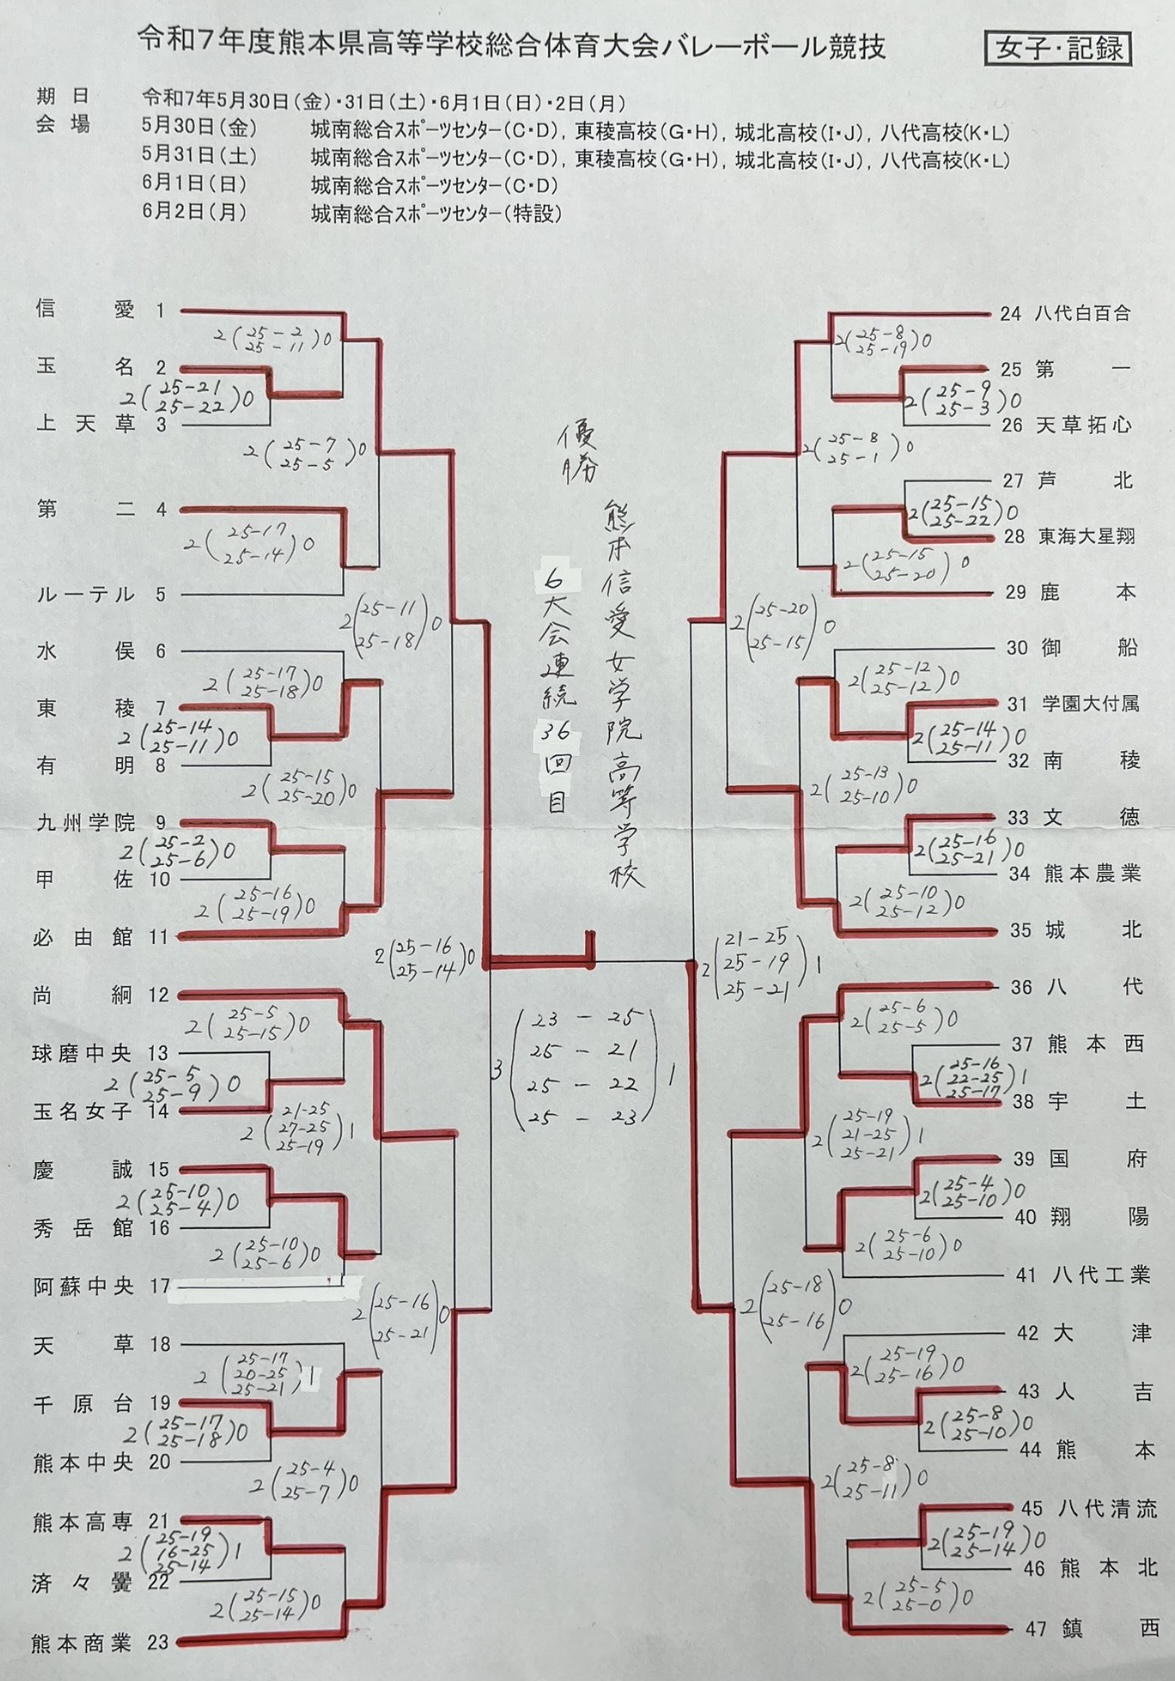 令和7年度熊本県高等学校総合体育大会バレーボール競技
女子・記録
期日 令和7年5月30日(金)・31日(土)・6月1日(日)・2日(月)
会場 5月30日(金) 城南総合スポーツセンター(C・D), 東稜高校(G・H), 城北高校(I・J), 八代高校(K・L)
5月31日(土) 城南総合スポーツセンター(C・D), 東稜高校(G・H), 城北高校(I・J), 八代高校(K・L)
6月1日(日) 城南総合スポーツセンター(C・D)
6月2日(月) 城南総合スポーツセンター(特設)
信愛 1
2(25-2 25-11)0
玉名 2
2(25-21 25-22)0
上天草 3
2(25-7 25-5)0
第二 4
2(25-17 25-14)0
ルーテル 5
2(25-11 25-18)0
水俣 6
2(25-17 25-18)0
東稜 7
2(25-14 25-11)0
有明 8
2(25-15 25-20)0
九州学院 9
2(25-2 25-6)0
甲佐 10
2(25-16 25-19)0
必由館 11
2(25-16 25-14)0
尚絅 12
2(25-5 25-15)0
球磨中央 13
2(25-5 25-9)0
玉名女子 14
2(21-25 27-25 25-19)1
慶誠 15
2(25-10 25-4)0
秀岳館 16
2(25-10 25-6)0
阿蘇中央 17
2(25-16 25-21)0
天草 18
2(25-17 20-25 25-21)1
千原台 19
2(25-17 25-18)0
熊本中央 20
2(25-4 25-7)0
熊本高専 21
2(25-19 16-25 25-14)1
済々黌 22
2(25-15 25-14)0
熊本商業 23
優勝
熊本信愛女学院高等学校
6大会連続36回目
3(23-25 25-21 25-22 25-23)1
24 八代白百合
2(25-8 25-19)0
25 第一
2(25-9 25-3)0
26 天草拓心
2(25-8 25-1)0
27 芦北
2(25-15 25-22)0
28 東海大星翔
2(25-15 25-20)0
29 鹿本
2(25-20 25-15)0
30 御船
2(25-12 25-12)0
31 学園大付属
2(25-14 25-11)0
32 南稜
2(25-13 25-10)0
33 文徳
2(25-16 25-21)0
34 熊本農業
2(25-10 25-12)0
35 城北
2(21-25 25-19 25-21)1
36 八代
2(25-6 25-5)0
37 熊本西
2(25-16 22-25 25-17)1
38 宇土
2(25-19 21-25 25-21)1
39 国府
2(25-4 25-10)0
40 翔陽
2(25-6 25-10)0
41 八代工業
2(25-18 25-16)0
42 大津
2(25-19 25-16)0
43 人吉
2(25-8 25-10)0
44 熊本
2(25-8 25-11)0
45 八代清流
2(25-19 25-14)0
46 熊本北
2(25-5 25-0)0
47 鎮西